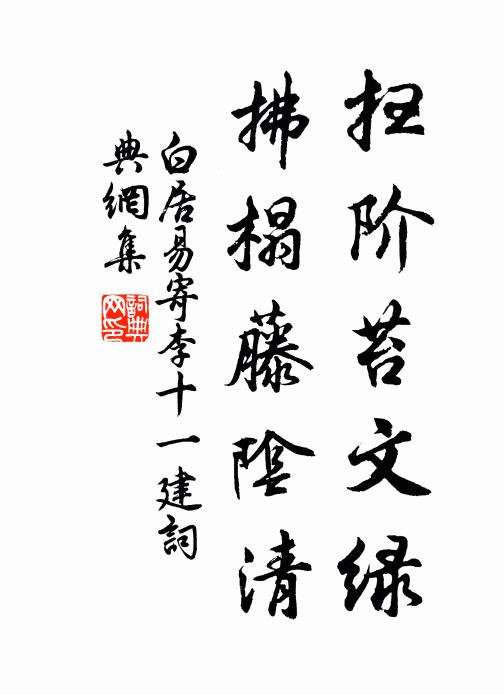 扫阶苔文绿
拂榻藤陰清
白居易寄李十一建詞
典網集
詞典网印